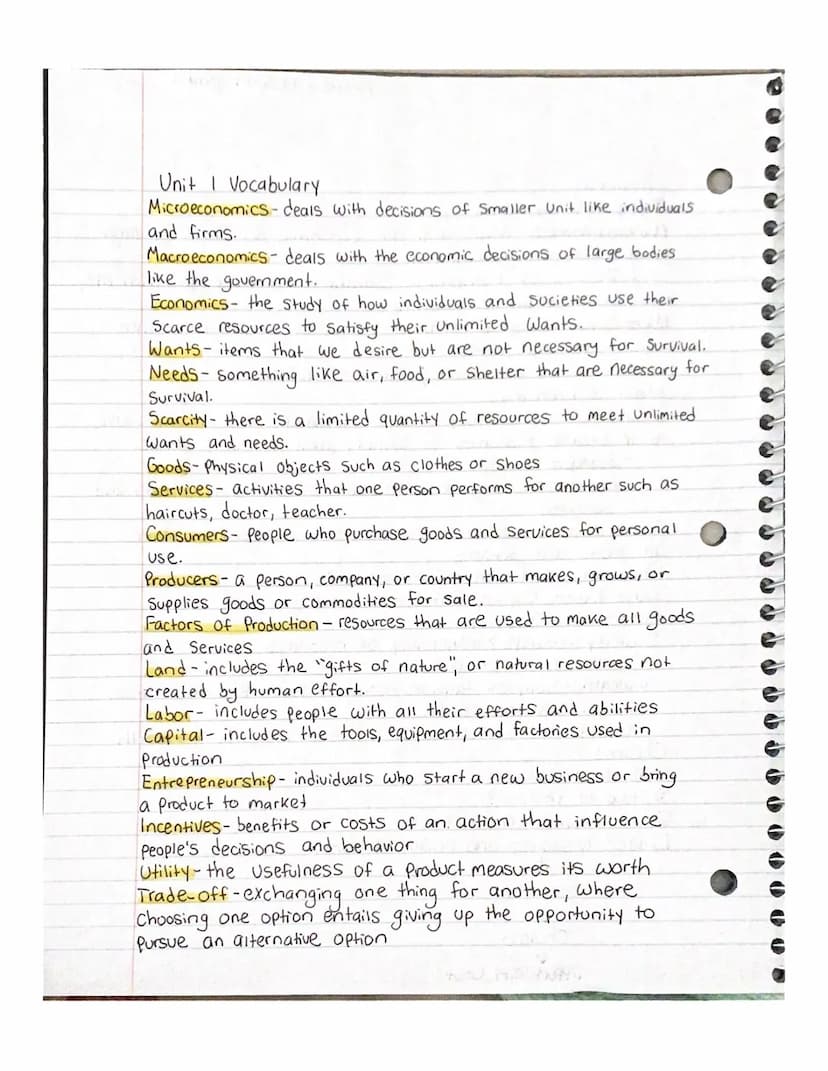 Unit 1 Vocabulary
Microeconomics- deals with decisions of smaller unit like individuals
and firms.
Macroeconomics- deals with the economic decisions of large bodies
like the government.
Economics- the study of how individuals and societies use their
scarce resources to satisfy their unlimited wants.
Wants- items that we desire but are not necessary for survival.
Needs- something like air, food, or shelter that are necessary for
survival.
Scarcity- there is a limited quantity of resources to meet unlimited
wants and needs.
Goods- Physical objects such as clothes or shoes
Services- activities that one person performs for another such as
haircuts, doctor, teacher.
Consumers- people who purchase goods and services for personal
use.
Producers- a person, company, or country that makes, grows, or
supplies goods or commodities for sale.
Factors of Production- resources that are used to make all goods
and services
Land- includes the "gifts of nature", or natural resources not
created by human effort.
Labor- includes people with all their efforts and abilities
Capital- includes the tools, equipment, and factories used in
production
Entrepreneurship- individuals who start a new business or bring
a product to market
Incentives- benefits or costs of an action that influence
people's decisions and behavior
Utility- the usefulness of a product measures its worth
Trade-off- exchanging one thing for another, where
choosing one option entails giving up the opportunity to
pursue an alternative option